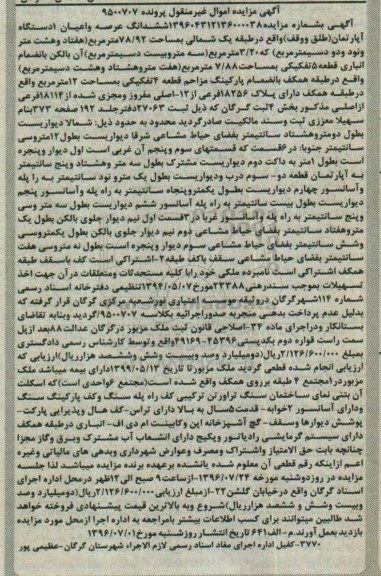 آگهی مزایده اموال غیرمنقول پرونده ۹۵۰۰۷۰۷
آگهی بشماره مزایده۱۳۹۶۰۴۳۱۲۱۳۶۰۰۰۰۳۸ششدانگ عرصه واعیان ۱دستگاه
آپارتمان(طلق ووقف)واقع درطبقه یک شمالی بمساحت ۷۸/۹۲مترمربع(هفتاد وهشت متر
ونود ودو دسیمترمربع) که۳/۲۰مترمربع(سه متروبیست دسیمترمربع)آن بالکن بانضمام
انباری قطعه۵تفکیکی بمساحت۷/۸۸ مترمربع(هفت متروهشتاد وهشت دسیمترمربع)
واقع درطبقه همکف بانضمام پارکینگ مزاحم قطعه ۴تفکیکی بمساحت ۱۲مترمربع واقع
درطبقه همکف دارای پلاک ۱۸۲۵۶فرعی از۱۲-اصلی مفروز ومجزی شده از۱۸۱۱۲فرعی
ازاصلی مذکور بخش ۴ثبت گرگان که ذیل ثبت ۳۷۰۶۳دفترجلد ۱۹۲ صفحه ۳۷۳بنام
سهیلا معززی ثبت وسند مالکیت صادرگردید محدود به حدود ذیل: شمالا دیواریست
بطول دومتروهشتاد سانتیمتر بفضای حیاط مشاعی شرقا دیواریست بطول ۱۲متروسی
سانتیمتر جنوبا: در۶قسمت که قسمتهای سوم وپنجم آن غربی است اول دیوار وپنجره
است بطول ۱متر به داکت دوم دیواریست مشترک بطول سه متر وهشتاد وپنج سانتیمتر
به آپارتمان قطعه دو- سوم درب ودیواریست بطول یک مترو نود سانتیمتر به را پله
وآسانسور چهارم دیواریست بطول یکمتروپنجاه سانتیمتر به راه پله وآسانسور پنجم
دیواریست بطول بیست سانتیمتر به راه پله آسانسور ششم دیواریست بطول سه متر وسی
وپنج سانتیمتر به راه پله وآسانسور غربا در۳قسمت اول نیم دیوار جلوی بالکن بطول یک
متروهفتاد سانتیمتر بفضای حیاط مشاعی دوم نیم دیوار جلوی بالکن بطول یکمتروسی
وشش سانتیمتر بفضای حیاط مشاعی سوم دیوار وپنجره است بطول نه متروسی هفت
سانتیمتر بفضای حیاط مشاعی سقف باکف طبقه۲-اشتراکی است کف باسقف طبقه
همکف اشتراکی است نامبرده ملکی خود رابا کلیه مستحدثات ومتعلقات درآن جهت اخذ
تسهیلات بموجب سندرهنی ۲۳۳۸۸مورخ۱۳۹۴/۰۵/۰۷تنظیمی دفترخانه اسناد رسمی
شماره ۱۱۴شهرگرگان دروثیقه موسسه اعتباری نورشعبه مرکزی گرگان قرار گرفته که
بدلیل عدم پرداخت بدهی منجربه صدوراجرائیه بکلاسه ۹۵۰۰۷۰۷گردید وبنابه تقاضای
بستانکار ودراجرای ماده ۳۴-اصلاحی قانون ثبت ملک مزبور درگرگان عدالت۸۸بعد ازپل
سمت راست قواره دوم بکدپستی۴۵۳۹۶-۴۹۱۶۹واقع توسط کارشناس رسمی دادگستری
بمبلغ ۲/۱۲۶/۶۰۰/۰۰۰ریال(دومیلیارد وصد وبیست وشش وششصد هزارریال)ارزیابی که
ارزیابی انجام شده قطعی گردید ملک مزبورتا تاریخ ۱۳۹۹/۰۵/۱۲دارای بیمه میباشد ملک
مزبوردر۱مجتمع ۴ طبقه برروی همکف واقع شده است(مجتمع ۶واحدی است)که اسکلت
آن بتنی نمای ساختمان سنگ تراورتن ترکیبی کف راه پله سنگ وکف پارکینگ سنگ
ودارای آسانسور ۲خوابه- قدمت۵سال به بالا دارای تراس-کف هال وپذیرایی پارکت-
پوشش دیوارها وسقف- گچ آشپزخانه اپن وکابینت ام دی اف- انباری درطبقه همکف
دارای سیستم گرمایشی رادیاتور وپکیج دارای انشعاب آب مشترک وبرق وگاز مجزا
چنانچه بابت حق الامتیاز واشتراک ومصرف وعوارض شهرداری وبدهی های مالیاتی وغیره
اعم ازاینکه رقم قطعی آن معلوم شده یانشده برعهده برنده مزایده میباشد لذا جلسه
مزایده در روزدوشنبه مورخه ۱۳۹۶/۰۷/۲۴-ازساعت ۹ صبح الی ۱۲ظهر درمحل اداره اجرای
اسناد گرگان واقع درخیابان گلشن ۲۲-ازمبلغ ارزیابی۲/۱۲۶/۶۰۰/۰۰۰ریال(دومیلیارد وصد
وبیست وشش و ششصد هزارریال)شروع وبه بالاترین قیمت پیشنهادی فروخته خواهد
شد طالبین میتوانند برای کسب اطلاعات بیشتر بامراجعه به اداره اجرا ازمحل مورد مزایده
بازدید بعمل آورند.م-الف۶۴۱ تاریخ انتشار روزشنبه مورخ۱۳۹۶/۰۷/۰۱
۳۷۷۰-کفیل اداره اجرای مفاد اسناد رسمی لازم الاجراء شهرستان گرگان-عظیمی پور